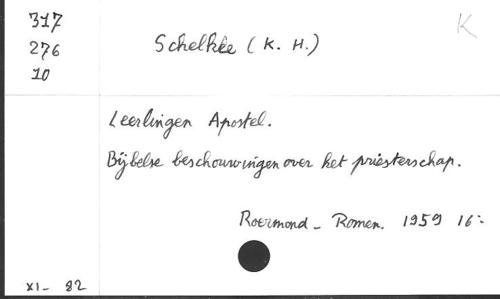 317
276
10
Schelkle (K. H.)
K
Leerlingen Apostel.
Bijbelse beschouwingen over het priesterschap.
Roermond - Romen. 1959 16:
XI - 82